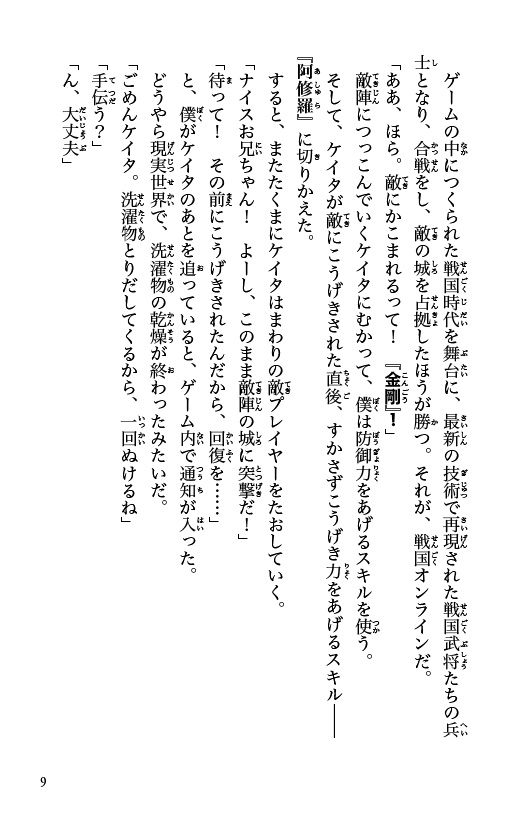 ゲームの中につくられた戦国時代を舞台に、最新の技術で再現された戦国武将たちの兵
士となり、合戦をし、敵の城を占拠したほうが勝つ。それが、戦国オンラインだ。
「ああ、ほら。敵にかこまれるって！　『金剛』！」
敵陣につっこんでいくケイタにむかって、僕は防御力をあげるスキルを使う。
そして、ケイタが敵にこうげきされた直後、すかさずこうげき力をあげるスキル――
『阿修羅』に切りかえた。
すると、またたくまにケイタはまわりの敵プレイヤーをたおしていく。
「ナイスお兄ちゃん！　よーし、このまま敵陣の城に突撃だ！」
「待って！　その前にこうげきされたんだから、回復を……」
と、僕がケイタのあとを追っていると、ゲーム内で通知が入った。
どうやら現実世界で、洗濯物の乾燥が終わったみたいだ。
「ごめんケイタ。洗濯物とりだしてくるから、一回ぬけるね」
「手伝う？」
「ん、大丈夫」
9